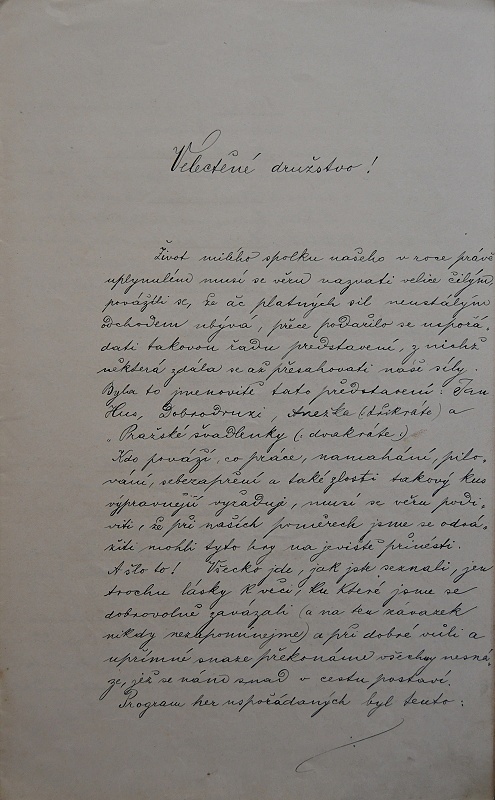 Velectěné družstvo!
Život milého spolku našeho v roce právě
uplynulém musí se věru nazvati velice čilým,
povážíli se, že ač platných sil neustálým
odchodem ubývá, přece podařilo se uspořá-
dati takovou řadu představení, z nichž
některá zdála se až přesahovati naše síly.
Byla to jmenovitě tato představení: Jan
Hus, Dobrodruzi, Anežka (:třikráte:) a
„Pražské švadlenky (: dvakráte :)
Kdo pováží, co práce, namahání, pilo-
vání, sebezapření a také zlosti takový kus
výpravnější vyžaduje, musí se věru podi-
viti, že při našich poměrech jsme se odvá-
žiti mohli tyto hry na jeviště přinésti.
A šlo to! Všecko jde, jak jsk seznali, jen
trochu lásky k věci, ku které jsme se
dobrovolně zavázali (a na ten závazek
nikdy nezapomínejme) a při dobré vůli a
upřímné snaze překonáme všechny nesná-
ze, jež se nám snad v cestu postaví.
Program her uspořádaných byl tento: